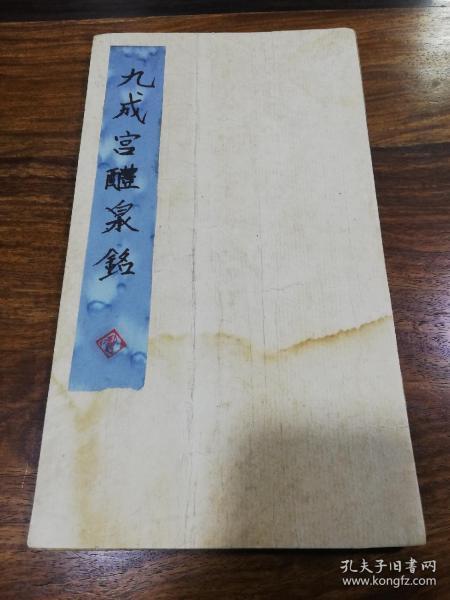 九成宫醴泉銘
孔夫子旧书网
www.kongfz.com